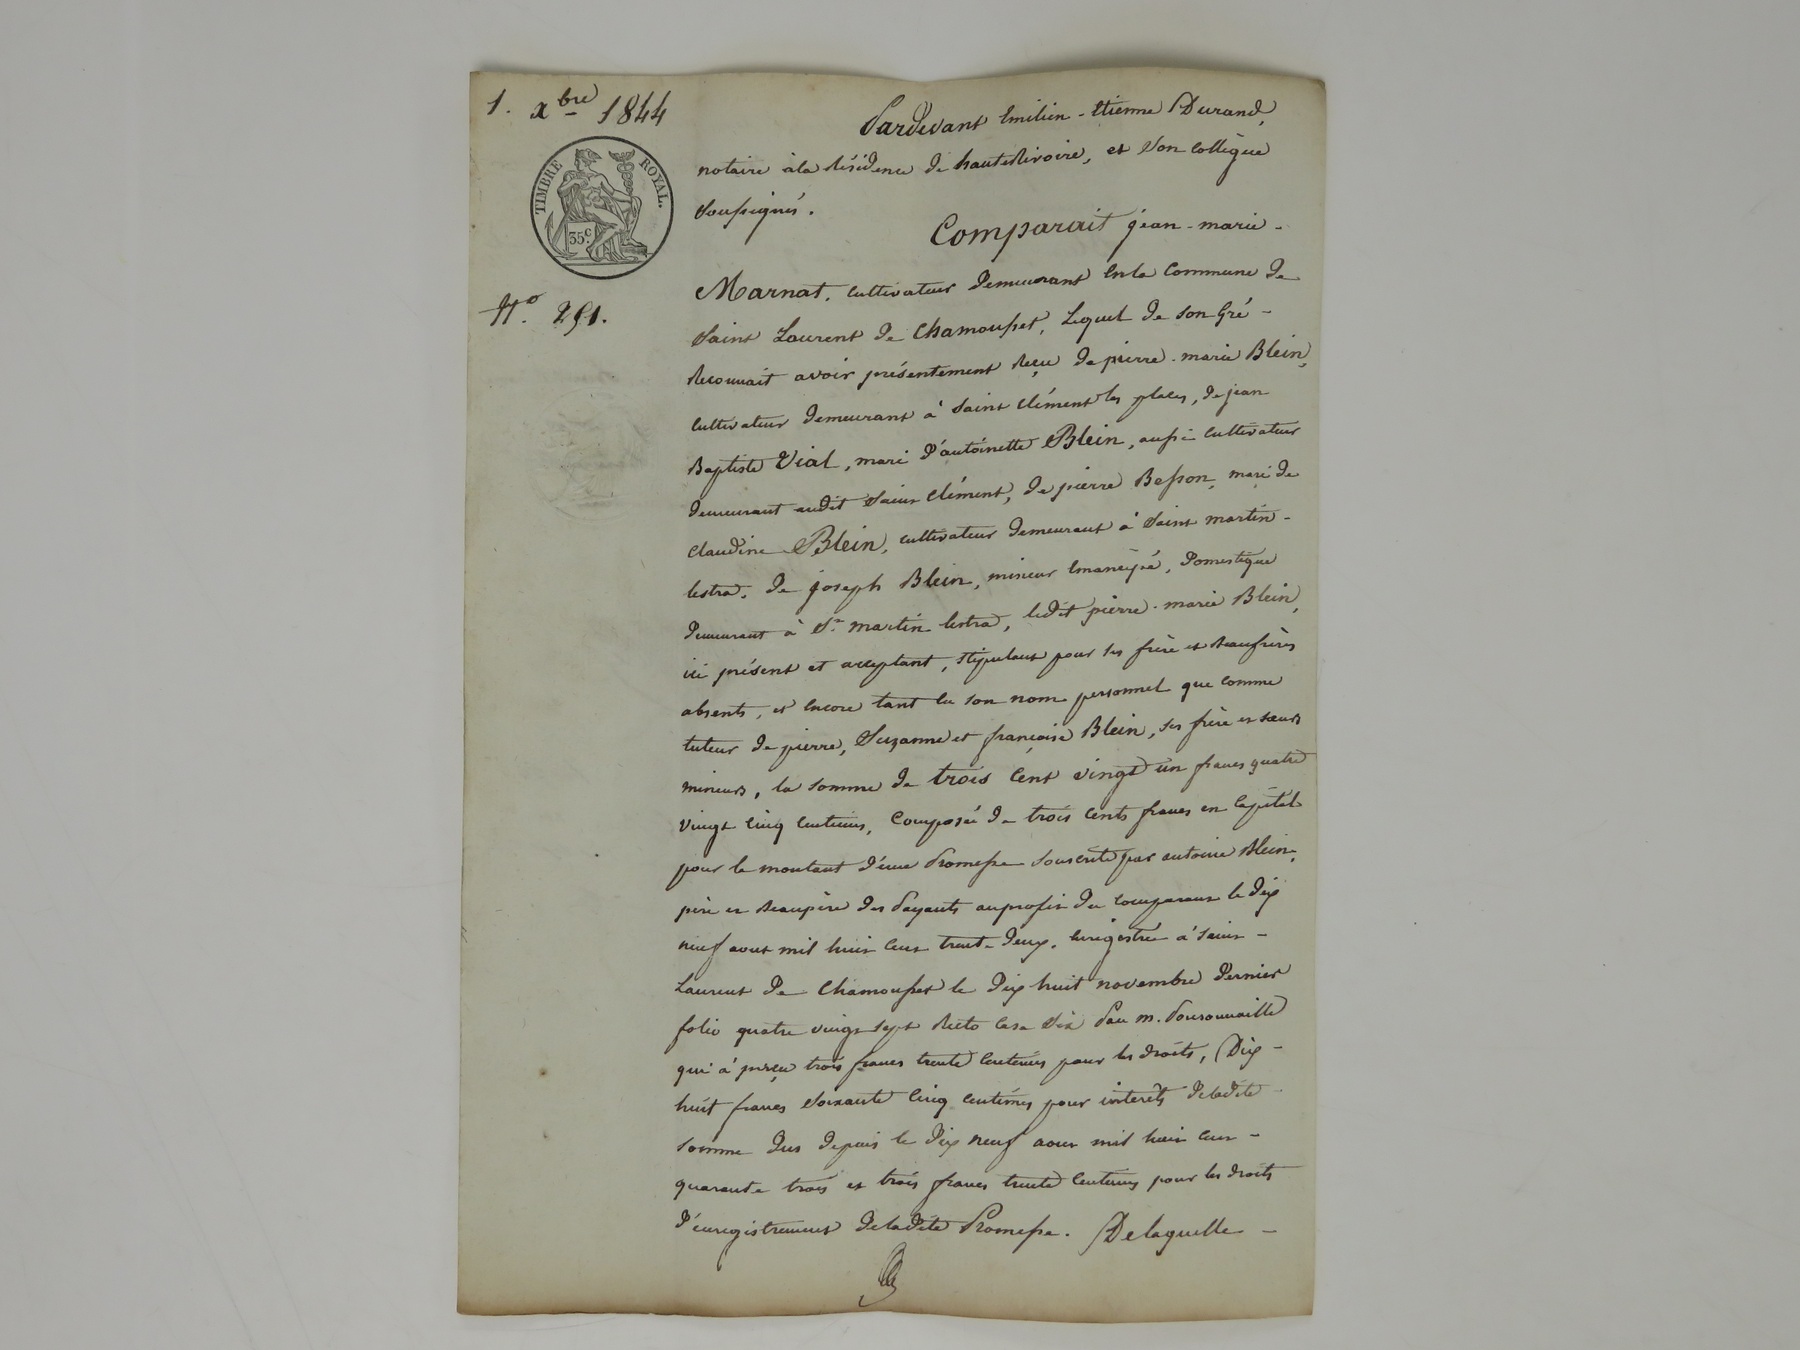 1. Xbre 1844
TIMBRE ROYAL.
35c.
No. 251.
Pardevant Emilien-Etienne Durand,
notaire à la Résidence de hauteRivoire, et Son Collègue
Soussignés.
Comparait jean-marie-
Marnat, cultivateur demeurant en la Commune de
Saint Laurent de Chamousset, Lequel de son Gré-
Reconnait avoir présentement Reçu de pierre-marie Blein,
cultivateur demeurant à Saint Clément les places, de jean
Baptiste Vial, mari d'antoinette Blein, aussi Cultivateur
demeurant audit Saint Clément, de pierre Besson, mari de
Claudine Blein, cultivateur demeurant à Saint martin-
lestra, de joseph Blein, mineur Emancipé, Domestique
demeurant à St. martin lestra, ledit pierre-marie Blein,
ici présent et acceptant, stipulant pour ses frère et Beaufrères
absents, et Encore tant en son nom personnel que comme
tuteur de pierre, Suzanne et françoise Blein, ses frère et sœurs
mineurs, la somme de trois Cent vingt un francs quatre
vingt Cinq Centimes, Composée de trois Cents francs en Capital
pour le montant d'une Promesse Souscrite par antoine Blein,
père et Beaupère des Payants au profit du comparant le dix
neuf aout mil huit Cent trente deux, Enregistrée à Saint-
Laurent de Chamousset le dix huit novembre dernier
folio quatre vingt sept Recto Case Six Par m.
qui à perçu trois francs trente Centimes pour les droits, Dix-
huit francs Soixante Cinq Centimes pour intérêts deladite-
somme dus depuis le dix neuf aout mil huit Cent-
quarante trois et trois francs trente Centimes pour les droits
d'enregistrement deladite Promesse. Delaquelle-